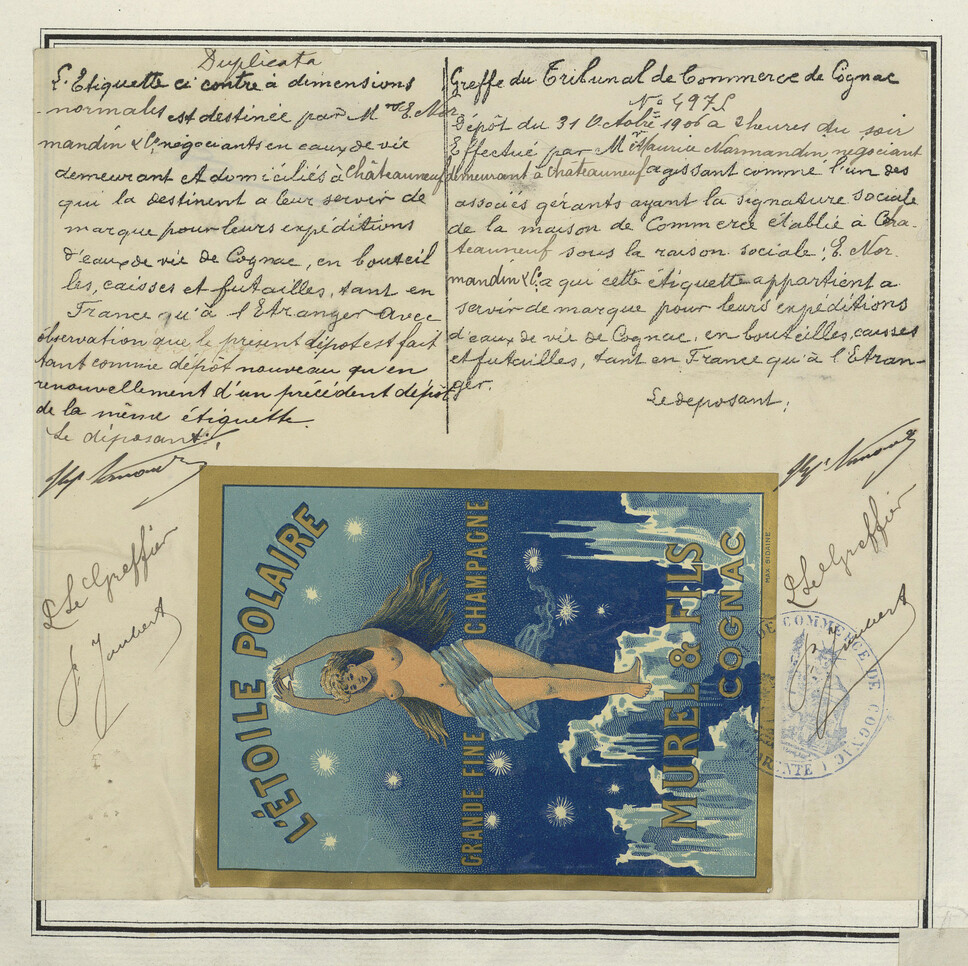 Duplicata
L'Etiquette ci contre à dimensions
normales est destinée par M.rs E. Nor-
mandin & Cie négociants en eaux de vie
demeurant et domiciliés à Châteauneuf
qui la destinent a leur servir de
marque pour leurs expéditions
d'eaux de vie de Cognac, en bouteil
les, caisses et futailles, tant en
France qu'à l'Etranger avec
observation que le présent dépôt est fait
tant comme dépôt nouveau qu'en
renouvellement d'un précédent dépôt
de la même étiquette.
Le déposant:
Le Greffier
Jaubert
Greffe du Tribunal de Commerce de Cognac
N° 4975
Dépôt du 31 Octobre 1906 a 2 heures du soir
Effectué par Mr Maurice Normandin négociant
demeurant à Châteauneuf agissant comme l'un des
associés gérants ayant la signature sociale
de la maison de Commerce établie à Cha-
teauneuf sous la raison sociale: E. Nor
mandin & Cie a qui cette étiquette appartient a
servir de marque pour leurs expéditions
d'eaux de vie de Cognac, en bouteilles, caisses
et futailles, tant en France qu'à l'Etran-
ger.
Le deposant;
Le Greffier
Jaubert
L'ÉTOILE POLAIRE
GRANDE FINE CHAMPAGNE
MUREL & FILS
COGNAC
MAX BIDAINE
DE COMMERCE DE COGNAC